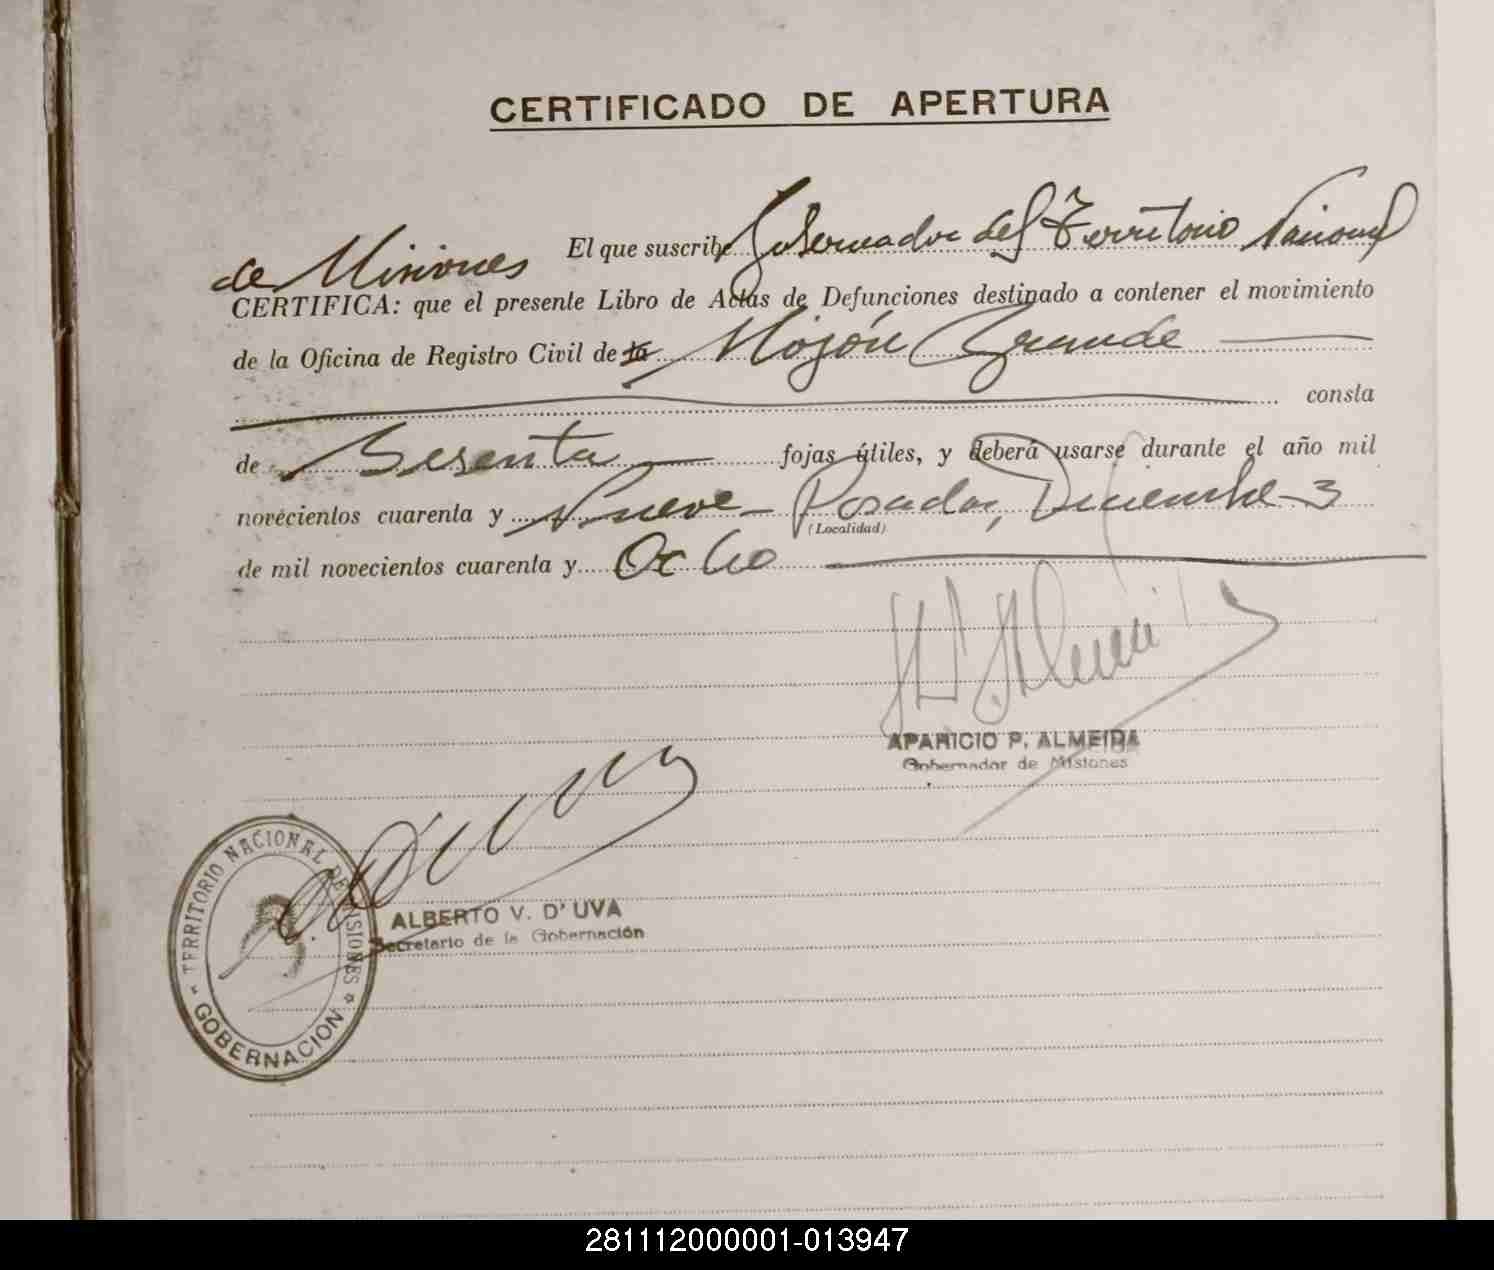 CERTIFICADO DE APERTURA
El que suscribe Gobernador del Territorio Nacional
de Misiones
CERTIFICA: que el presente Libro de Actas de Defunciones destinado a contener el movimiento
de la Oficina de Registro Civil de la Mojón Grande
consta
de Sesenta fojas útiles, y deberá usarse durante el año mil
novecientos cuarenta y Nueve - Posadas, Diciembre 3
(Localidad)
de mil novecientos cuarenta y Ocho
APARICIO P. ALMEIDA
Gobernador de Misiones
ALBERTO V. D'UVA
Secretario de la Gobernación
TERRITORIO NACIONAL DE MISIONES
GOBERNACION
281112000001-013947